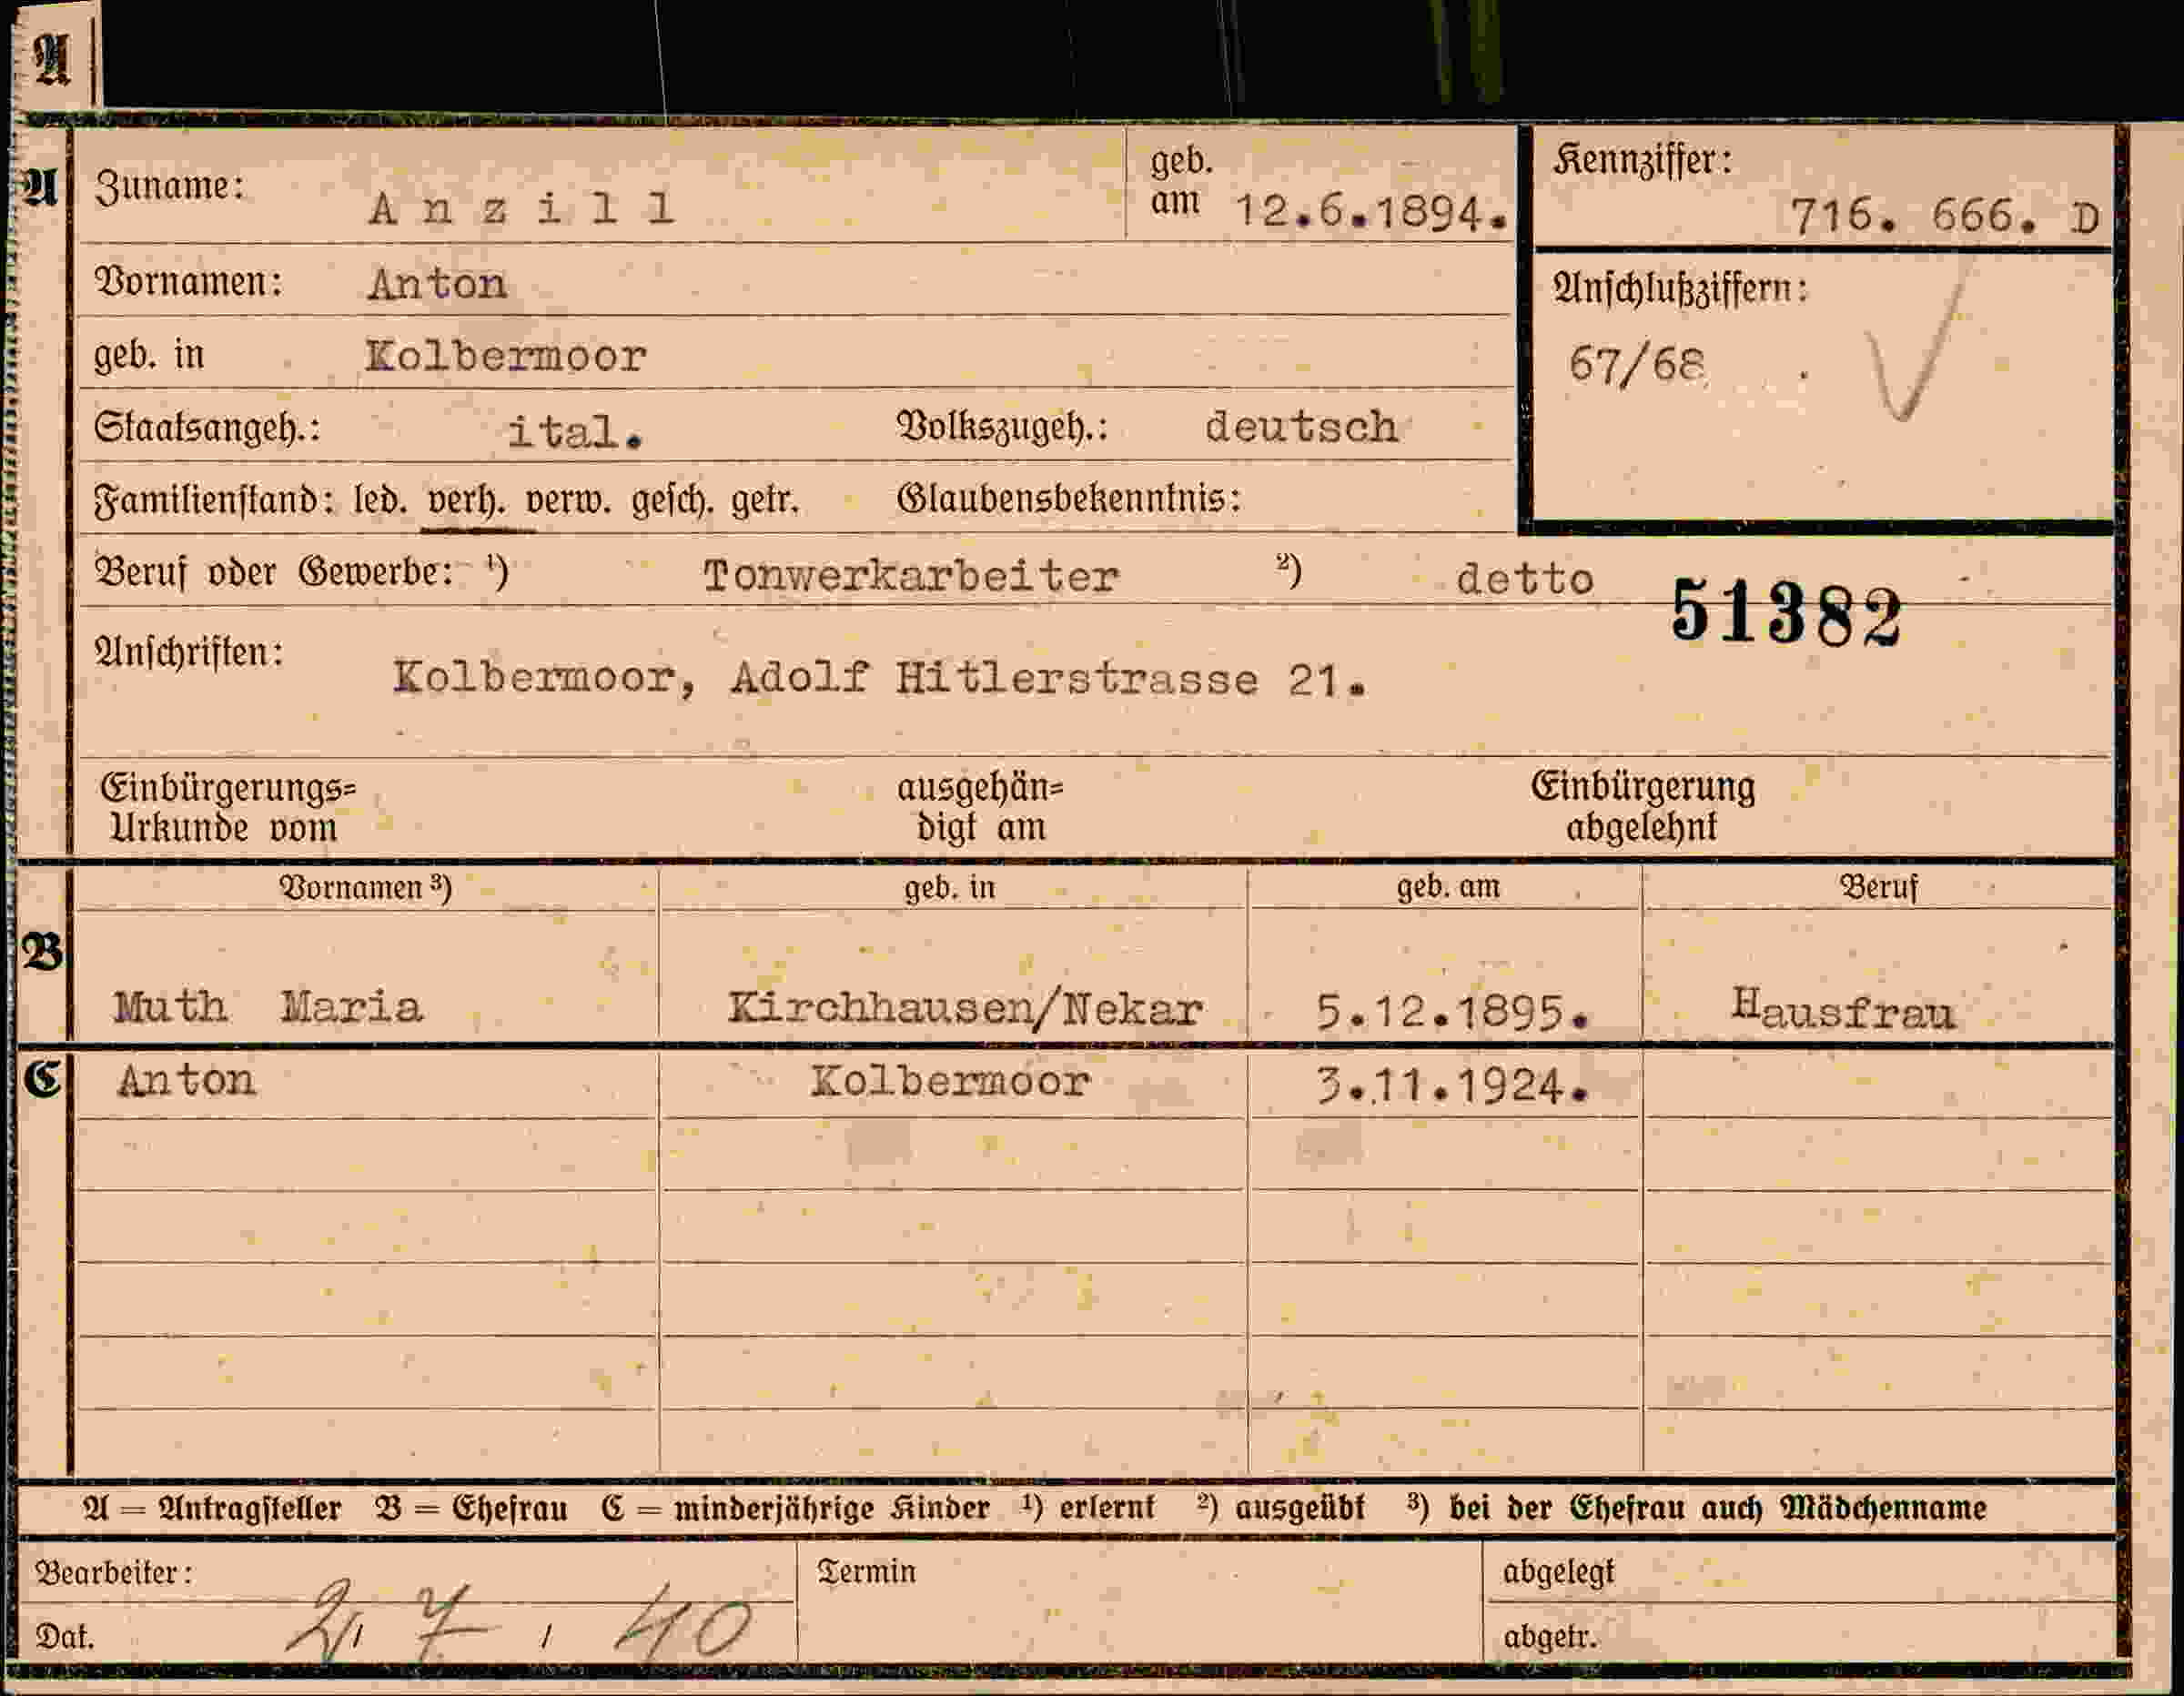 A
A Zuname: Anzill geb. am 12.6.1894. Kennziffer: 716. 666. D
Vornamen: Anton Anschlußziffern:
geb. in Kolbermoor 67/68
Staatsangeh.: ital. Volkszugeh.: deutsch
Familienstand: led. verh. verw. gesch. getr. Glaubensbekenntnis:
Beruf oder Gewerbe: ¹) Tonwerkarbeiter ²) detto
51382
Anschriften: Kolbermoor, Adolf Hitlerstrasse 21.
Einbürgerungs= ausgehän= Einbürgerung
Urkunde vom digt am abgelehnt
Vornamen ³) geb. in geb. am Beruf
B Muth Maria Kirchhausen/Nekar 5.12.1895. Hausfrau
C Anton Kolbermoor 3.11.1924.
A = Antragsteller B = Ehefrau C = minderjährige Kinder ¹) erlernt ²) ausgeübt ³) bei der Ehefrau auch Mädchenname
Bearbeiter: Termin abgelegt
Dat. 2. 7. 40 abgetr.